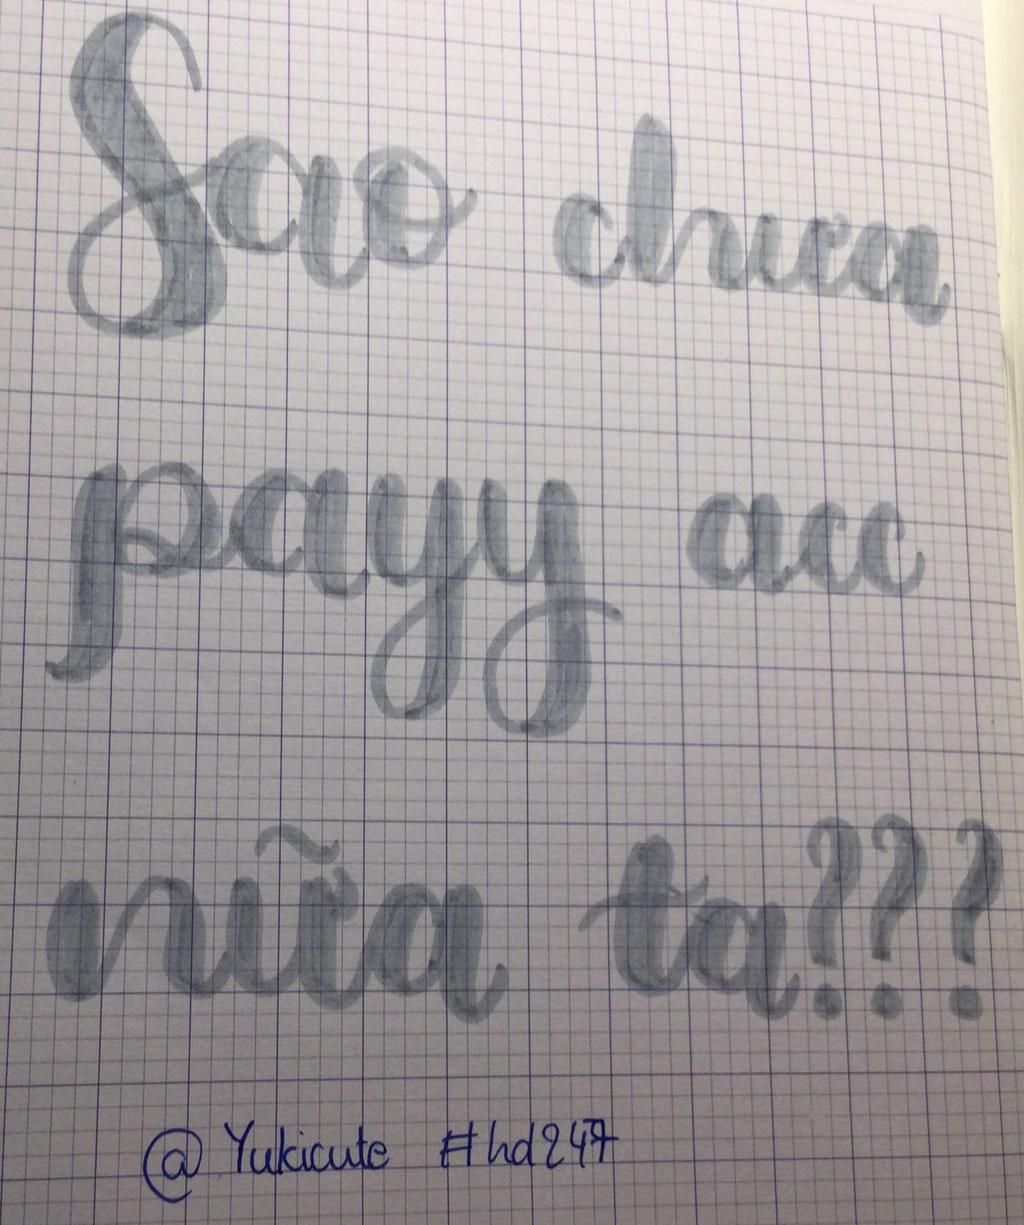 Sao chưa
payy acc
nữa ta???
@Yukicute #hd247